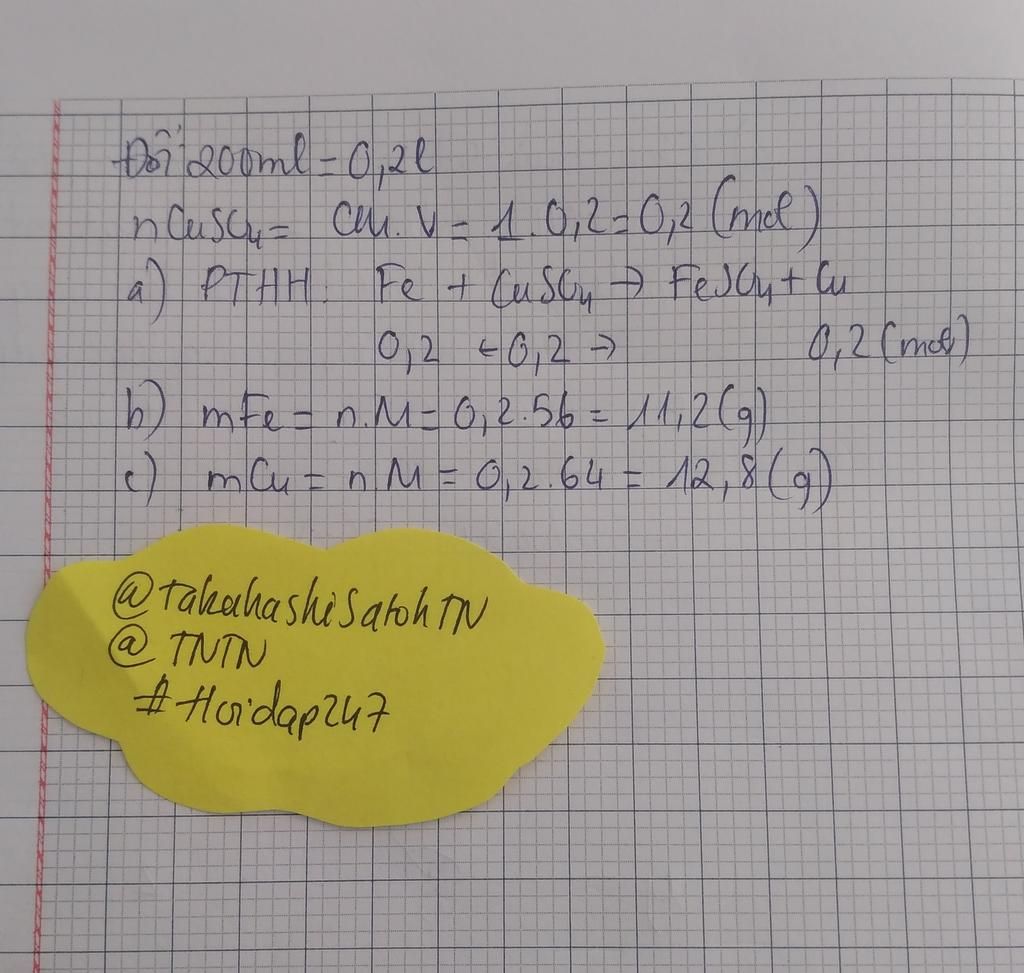 Đổi 200ml = 0,2l
nCuSO4 = CM.V = 1.0,2 = 0,2 (mol)
a) PTHH: Fe + CuSO4 → FeSO4 + Cu
0,2 ← 0,2 → 0,2 (mol)
b) mFe = n.M = 0,2.56 = 11,2 (g)
c) mCu = n M = 0,2.64 = 12,8 (g)
@TakahashiSatohTN
@ TNTN
#Hoidap247